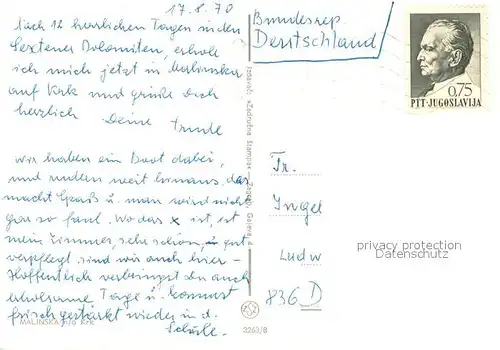 17.8.70
Nach 12 herrlichen Tagen in den
Sextener Dolomiten, erhole
ich mich jetzt in Malinska
auf Krk und grüße Dich
herzlich Deine Trude
wir haben ein Boot dabei,
und rudern weit hinaus, das
macht Spaß u. man wird nicht
gar so faul. Wo das x ist, ist
mein Zimmer, sehr schön, u. gut
verpflegt sind wir auch hier –
Hoffentlich verbringst Du auch
erholsame Tage u. kommst
frisch gestärkt wieder in d.
Schule.
MALINSKA n/o Krk
Izdavač: »Zadružna štampa« — Zagreb, Galerija
2263/8
Bundesrep
Deutschland
0,75
PTT-JUGOSLAVIJA
Fr.
Ingel
Ludw
836 D
privacy protection
Datenschutz